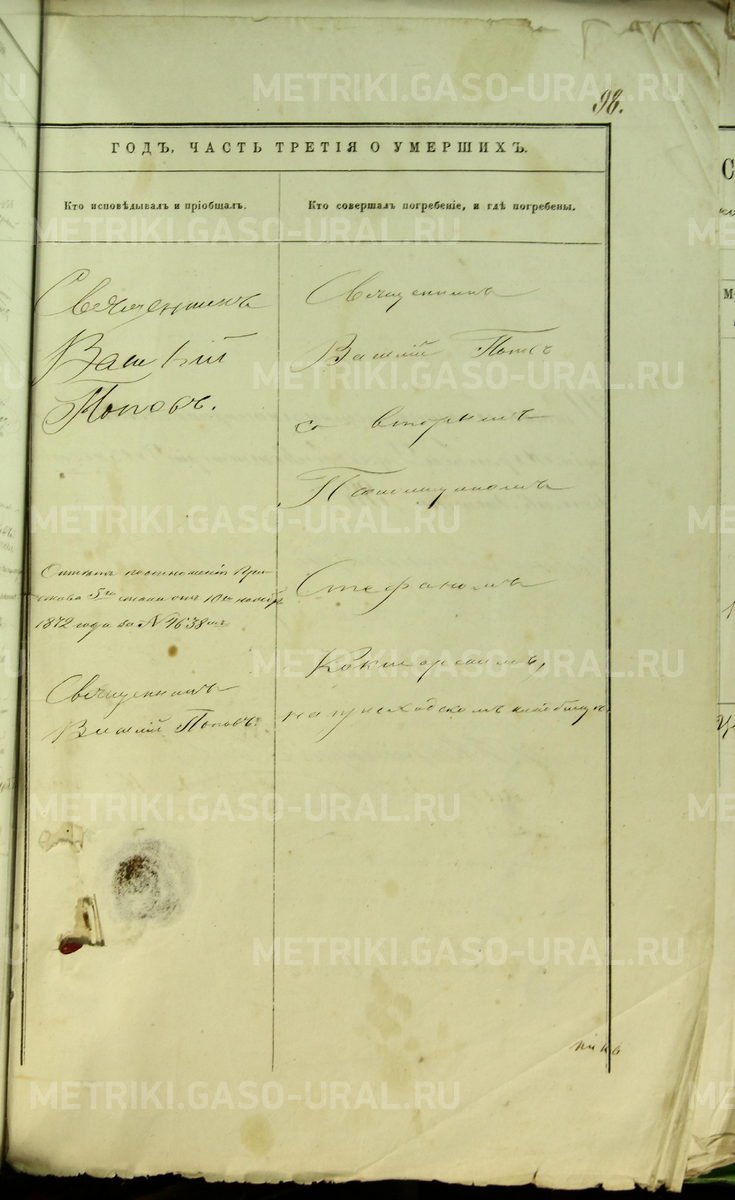 98.
ГОДЪ, ЧАСТЬ ТРЕТІЯ О УМЕРШИХЪ.
Кто исповѣдывалъ и пріобщалъ.
Кто совершалъ погребеніе, и гдѣ погребены.
Священникъ
Василій
Поповъ.
1872 года за № 4638мъ
Священникъ
Василій Поповъ.
Священникъ
Василій Поповъ
со вторымъ
Псаломщикомъ
Стефаномъ
на приходскомъ кладбищѣ
METRIKI.GASO-URAL.RU
METRIKI.GASO-URAL.RU
METRIKI.GASO-URAL.RU
METRIKI.GASO-URAL.RU
METRIKI.GASO-URAL.RU
METRIKI.GASO-URAL.RU
METRIKI.GASO-URAL.RU
METRIKI.GASO-URAL.RU